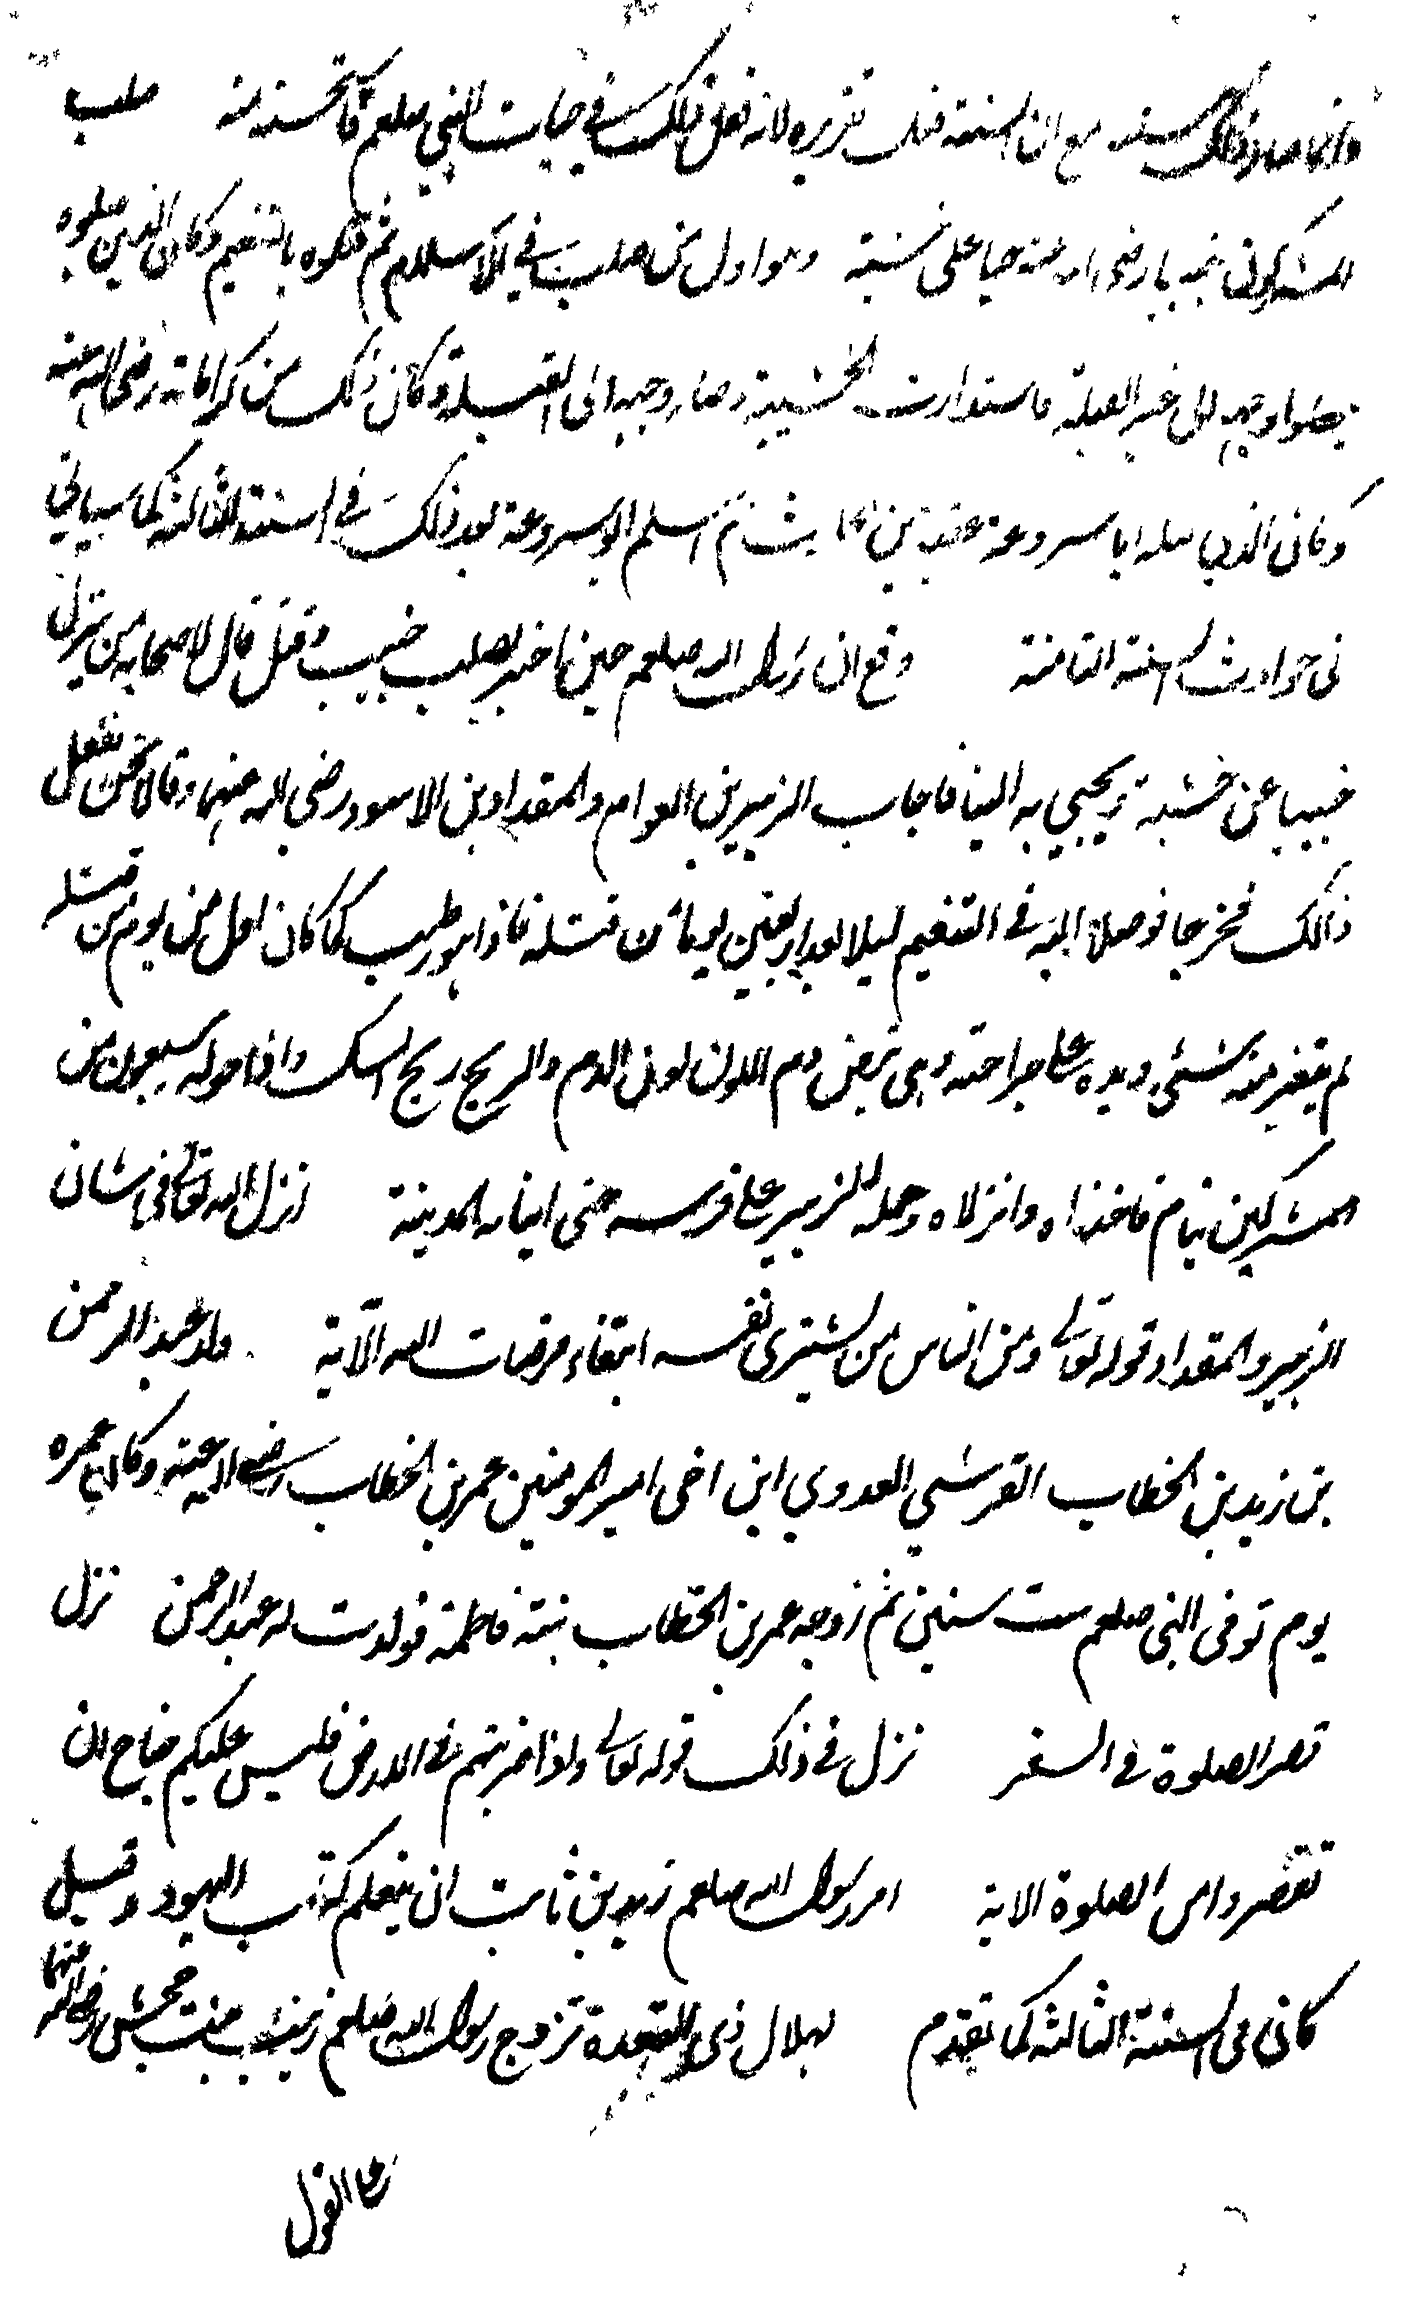 وانما صار ذلك سنة مع ان السنة فعله تقريره لانه فعل ذلك في حيات النبي صلعم فاستحسنه منه صلب
المشركون خبيبا رضي الله عنه حيا على خشبة وهو اول من صلب في الاسلام ثم قتلوه بالتنعيم وكان الذين صلبوه
جعلوا وجهه الى غير القبلة فاستدارت الخشبة وصار وجهه الى القبلة وكان ذلك من كراماته رضي الله عنه
وكان الذي قتله ابا سروعة عقبة بن الحارث ثم اسلم ابو سروعة بعد ذلك في السنة الثامنة كما سياتي
في حوادث السنة الثامنة وقع ان رسول الله صلعم حين اخبر بصلب خبيب وقتل قال لاصحابه من ينزل
خبيبا عن خشبة ويجيي به الينا فاجاب الزبير بن العوام والمقداد بن الاسود رضي الله عنهما وقالا نحن نفعل
ذالك فخرجا فوصلا اليه في التنعيم ليلا بعد اربعين يوما من قتله فاذا هو رطب كما كان اول من يوم من قتله
لم يتغير منه شئي ويده على جراحته وهي تبض دم اللون لون الدم والريح ريح المسك واذا حوله سبعون من
المشركين نيام فاخذاه وانزلاه وحمله الزبير على فرسه حتى اتيا به المدينة نزل الله تعالى في شان
الزبير والمقداد قوله تعالى ومن الناس من يشتري نفسه ابتغاء مرضات الله الآية ولد عبد الرحمن
بن زيد بن الخطاب القرشي العدوي ابن اخي امير المومنين عمر بن الخطاب رضي الله عنه وكان عمره
يوم توفى النبي صلعم ست سنين ثم زوجه عمر بن الخطاب بنته فاطمة فولدت له عبد الرحمن نزل
قصر الصلوة في السفر نزل في ذلك قوله تعالى واذا ضربتم في الارض فليس عليكم جناح ان
تقصروا من الصلوة الاية امر رسول الله صلعم زيد بن ثابت ان يتعلم كتاب اليهود وقيل
كان في السنة الثالثة كما تقدم لهلال ذي القعدة تزوج رسول الله صلعم زينب بنت جحش رضي الله عنها
القول